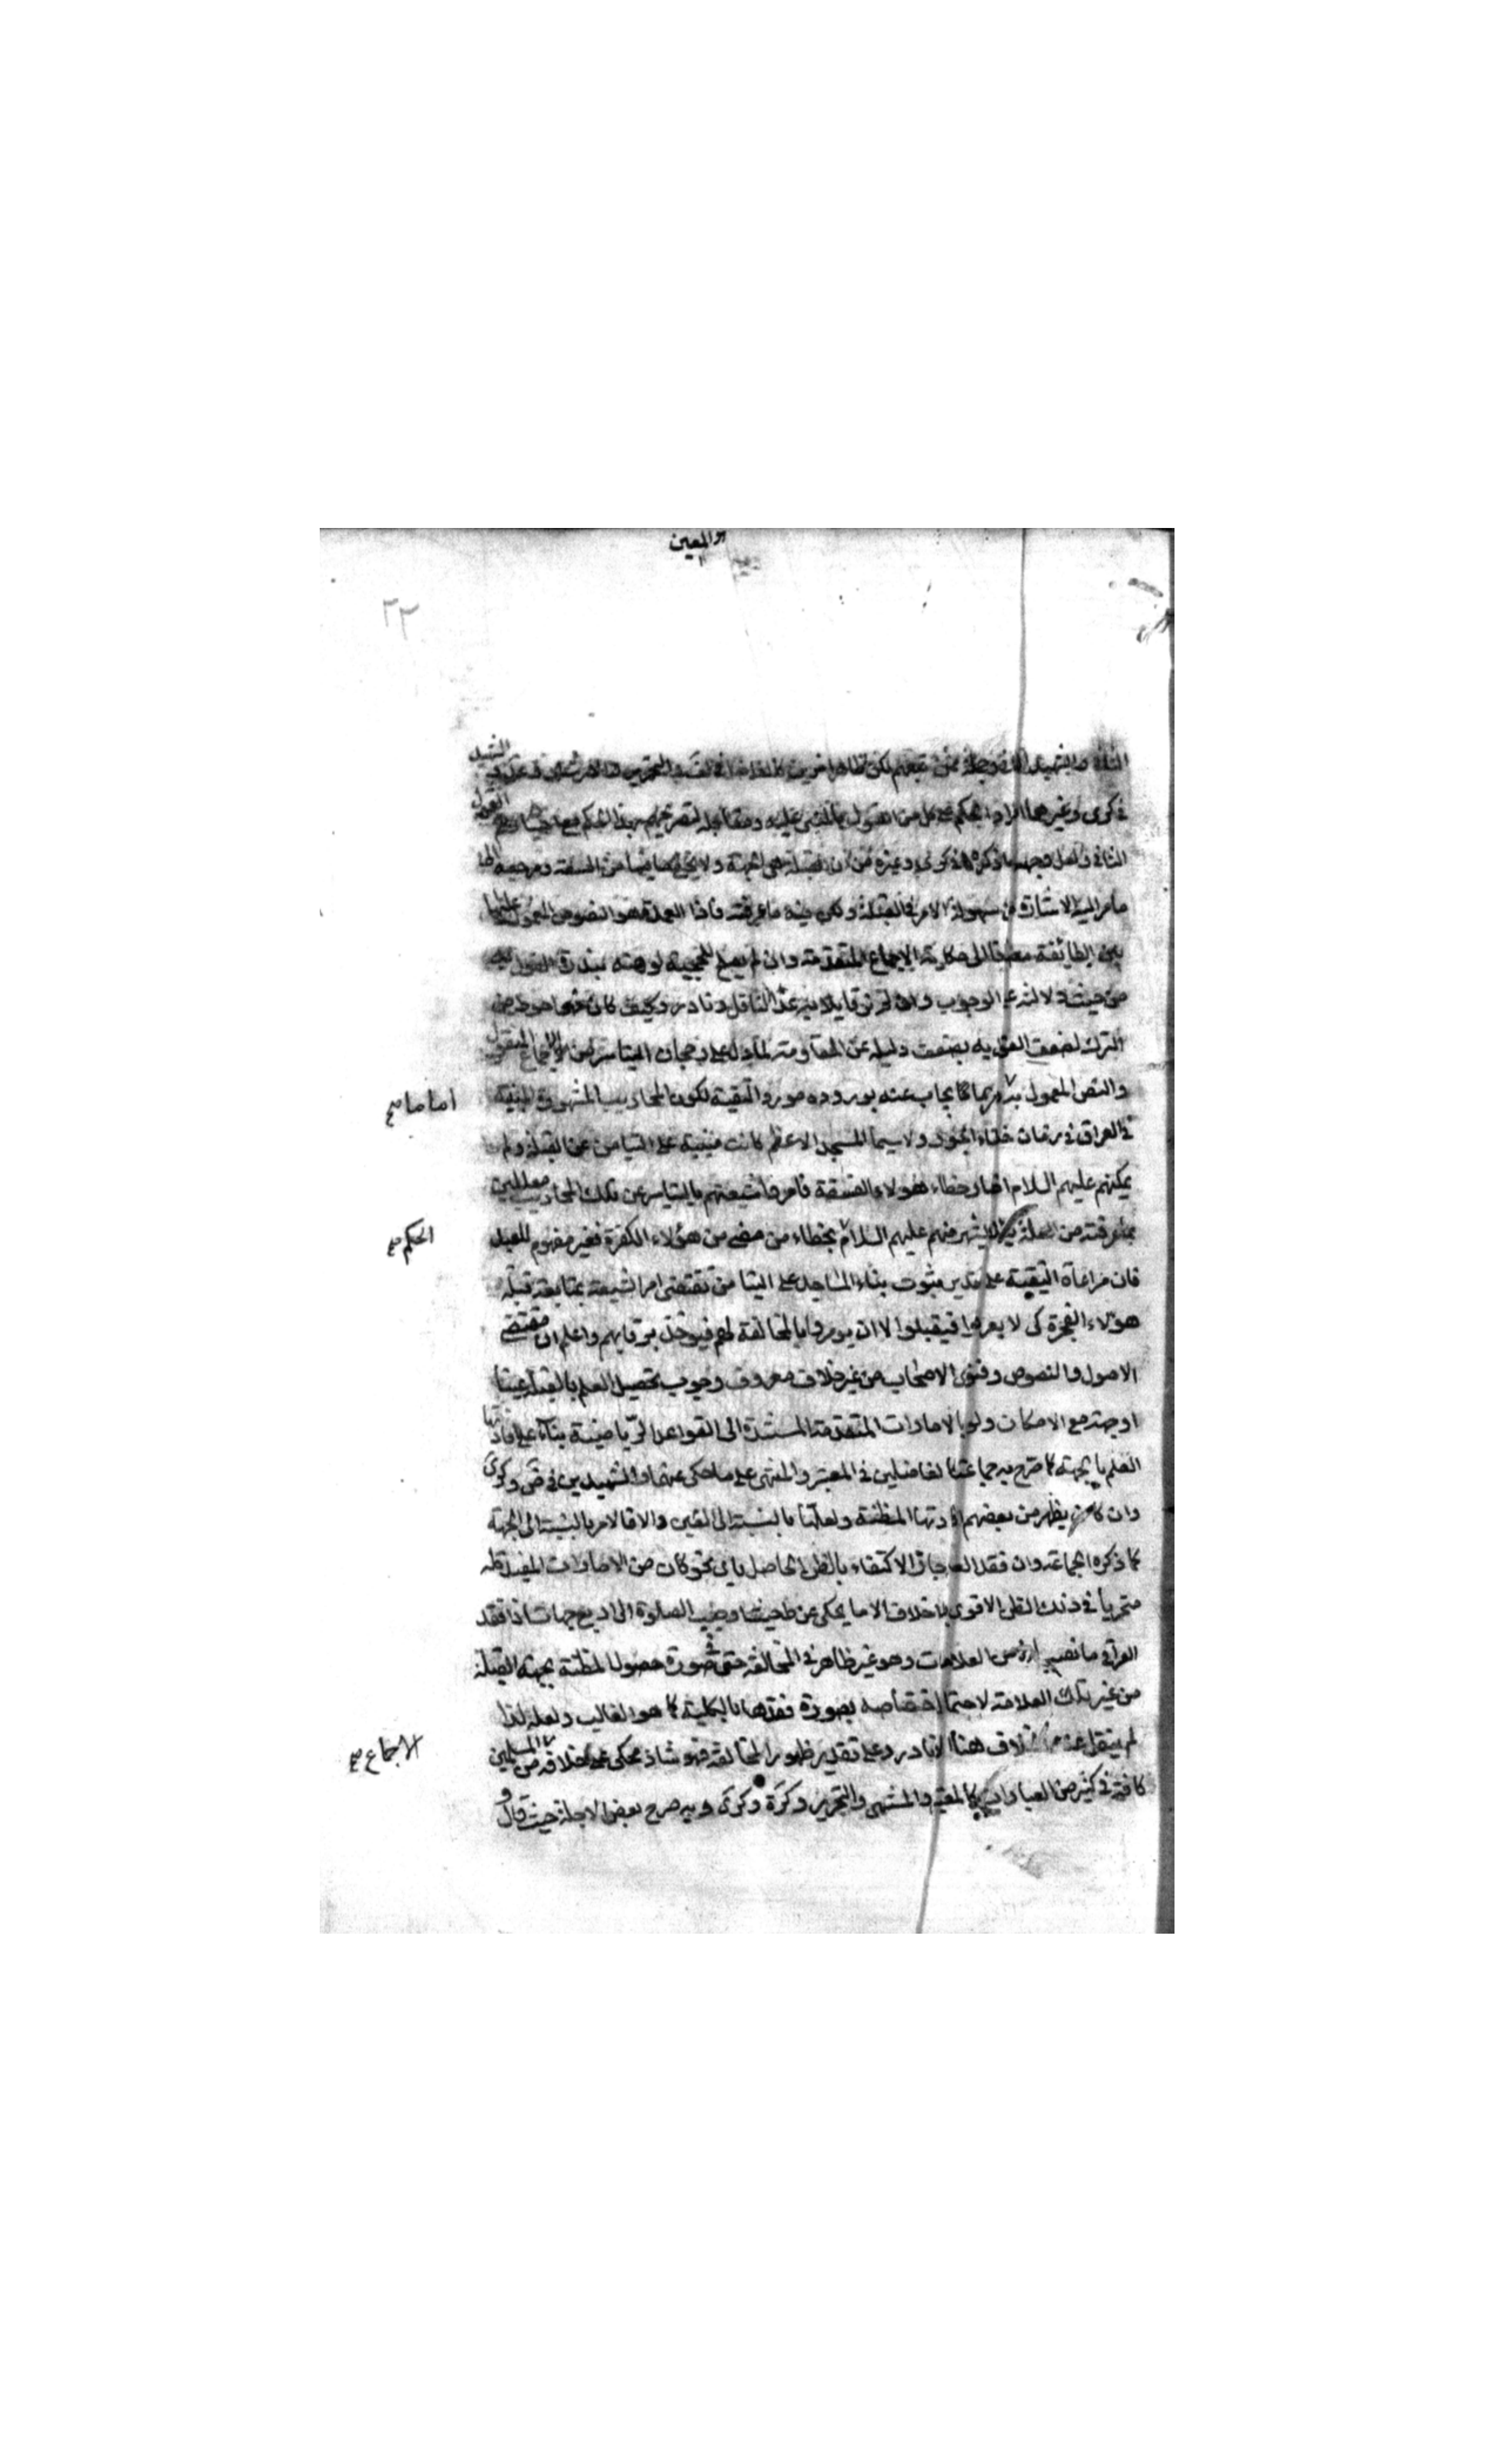 هو المعين
٢٣
الثاني والشهيد الثاني وجملة ممن تبعهم لكن ظاهر اخرين كالفاضل في لف والتحرير
في كرى وغيرهما اطراد الحكم على كل من القول بالمبنى عليه ومقابله لتصريحهم بهذا الحكم مع اختيارهم القول
الثاني ولعل وجهه ما ذكره في كرى وغيره من ان القبلة هي الجهة ولا يخفى ما فيها من السعة ومرجعه الى
ما مر اليه الاشارة من سهولة الامر في القبلة ولكن فيه ما عرفته فاذا العمدة هو النصوص المعمول عليها
بين الطائفة مضافا الى حكاية الاجماع المتقدمة وان لم يصلح للحجية لوهنه بندرة القول به
من حيث دلالته على الوجوب وان لم نر قايلا به عدا الناقل ونادر وكيف كان فهو احوط من
الترك لضعف القول به بضعف دليله عن المقاومة لما دل على رجحان التياسر من الاجماع المنقول
والنص المعمول به وربما يجاب عنه بوروده مورد التقية لكون المحاريب المشهورة المبنية
اماما صح
في العراق في زمان خلفاء الجور ولا سيما المسجد الاعظم كانت مبنية على التيامن عن القبلة ولم
يمكنهم عليهم السلام اظهار خطاء هؤلاء الفسقة فامروا شيعتهم بالتياسر عن تلك المحاريب معللين
بما عرفته من العلة لئلا يشتهر منهم عليهم السلام بخطاء من مضى من هؤلاء الكفرة فغير مفهوم للعبد
الحكم صح
فان مراعاة التقية على تقدير ثبوت بناء المساجد على التيامن تقتضى امر الشيعة بمتابعة قبلة
هؤلاء الفجرة كى لا يعرفوا فيقتلوا لا ان يومروا بالمخالفة لهم فيوخذ برقابهم واعلم ان مقتضى
الاصول والنصوص وفتوى الاصحاب من غير خلاف معروف وجوب تحصيل العلم بالقبلة عينا
او جهة مع الامكان ولو بالامارات المتقدمة المستندة الى القواعد الرياضية بناء على افادتها
العلم بالجهة كما صرح به جماعة كالفاضلين في المعتبر والمنتهى على ما حكى عنهما والشهيدين في ض وكرى
وان كان يظهر من بعضهم افادتها المظنة ولعلها بالنسبة الى العين والا فالامر بالنسبة الى الجهة
كما ذكره الجماعة وان فقد العلم جاز الاكتفاء بالظن الحاصل باى نحو كان من الامارات المفيدة له
متحريا في ذلك الظن الاقوى بلا خلاف الا ما يحكى عن ظ حيث اوجب الصلوة الى اربع جهات اذا فقد
العراقي ما نصب له من العلامات وهو غير ظاهر في المخالفة حتى في صورة حصول المظنة بجهة القبلة
من غير تلك العلامة لاحتمال اختصاصه بصورة فقدها بالكلية كما هو الغالب ولعله لذا
لم ينقل عنه الخلاف هنا الا نادر وعلى تقدير ظهور المخالفة فهو شاذ محكى على خلافه من المسلمين
الاجماع صح
كافة في كثير من العبارات كالمعتبر والمنتهى والتحرير وكرة وكرى وبه صرح بعض الاجلة حيث قال و